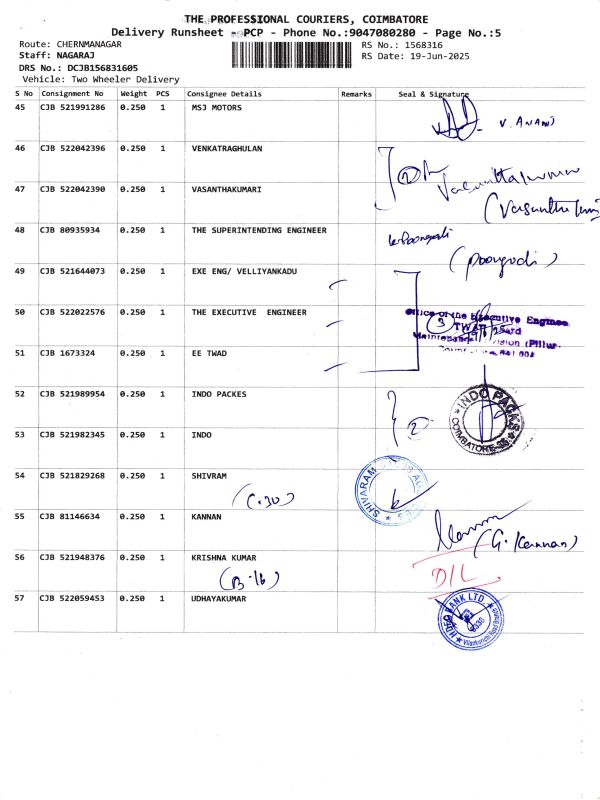 THE PROFESSIONAL COURIERS, COIMBATORE
Delivery Runsheet - PCP - Phone No.:9047080280 - Page No.:5
Route: CHERNMANAGAR
RS No.: 1568316
Staff: NAGARAJ
RS Date: 19-Jun-2025
DRS No.: DCJB156831605
Vehicle: Two Wheeler Delivery
S No Consignment No Weight PCS Consignee Details Remarks Seal & Signature
45 CJB 521991286 0.250 1 MSJ MOTORS
V. ANAND
46 CJB 522042396 0.250 1 VENKATRAGHULAN
2
Vasanthakumar
47 CJB 522042390 0.250 1 VASANTHAKUMARI
48 CJB 80935934 0.250 1 THE SUPERINTENDING ENGINEER
(Poongodi)
49 CJB 521644073 0.250 1 EXE ENG/ VELLIYANKADU
50 CJB 522022576 0.250 1 THE EXECUTIVE ENGINEER
Office of the Executive Engineer
3
TWAD Board
51 CJB 1673324 0.250 1 EE TWAD
52 CJB 521989954 0.250 1 INDO PACKES
INDO PACKS
COIMBATORE
2
53 CJB 521982345 0.250 1 INDO
54 CJB 521829268 0.250 1 SHIVRAM
(C.30)
SHIVARAM
55 CJB 81146634 0.250 1 KANNAN
(G. Kannan)
56 CJB 521948376 0.250 1 KRISHNA KUMAR
(B-16)
D/L
57 CJB 522059453 0.250 1 UDHAYAKUMAR
HDFC BANK LTD.